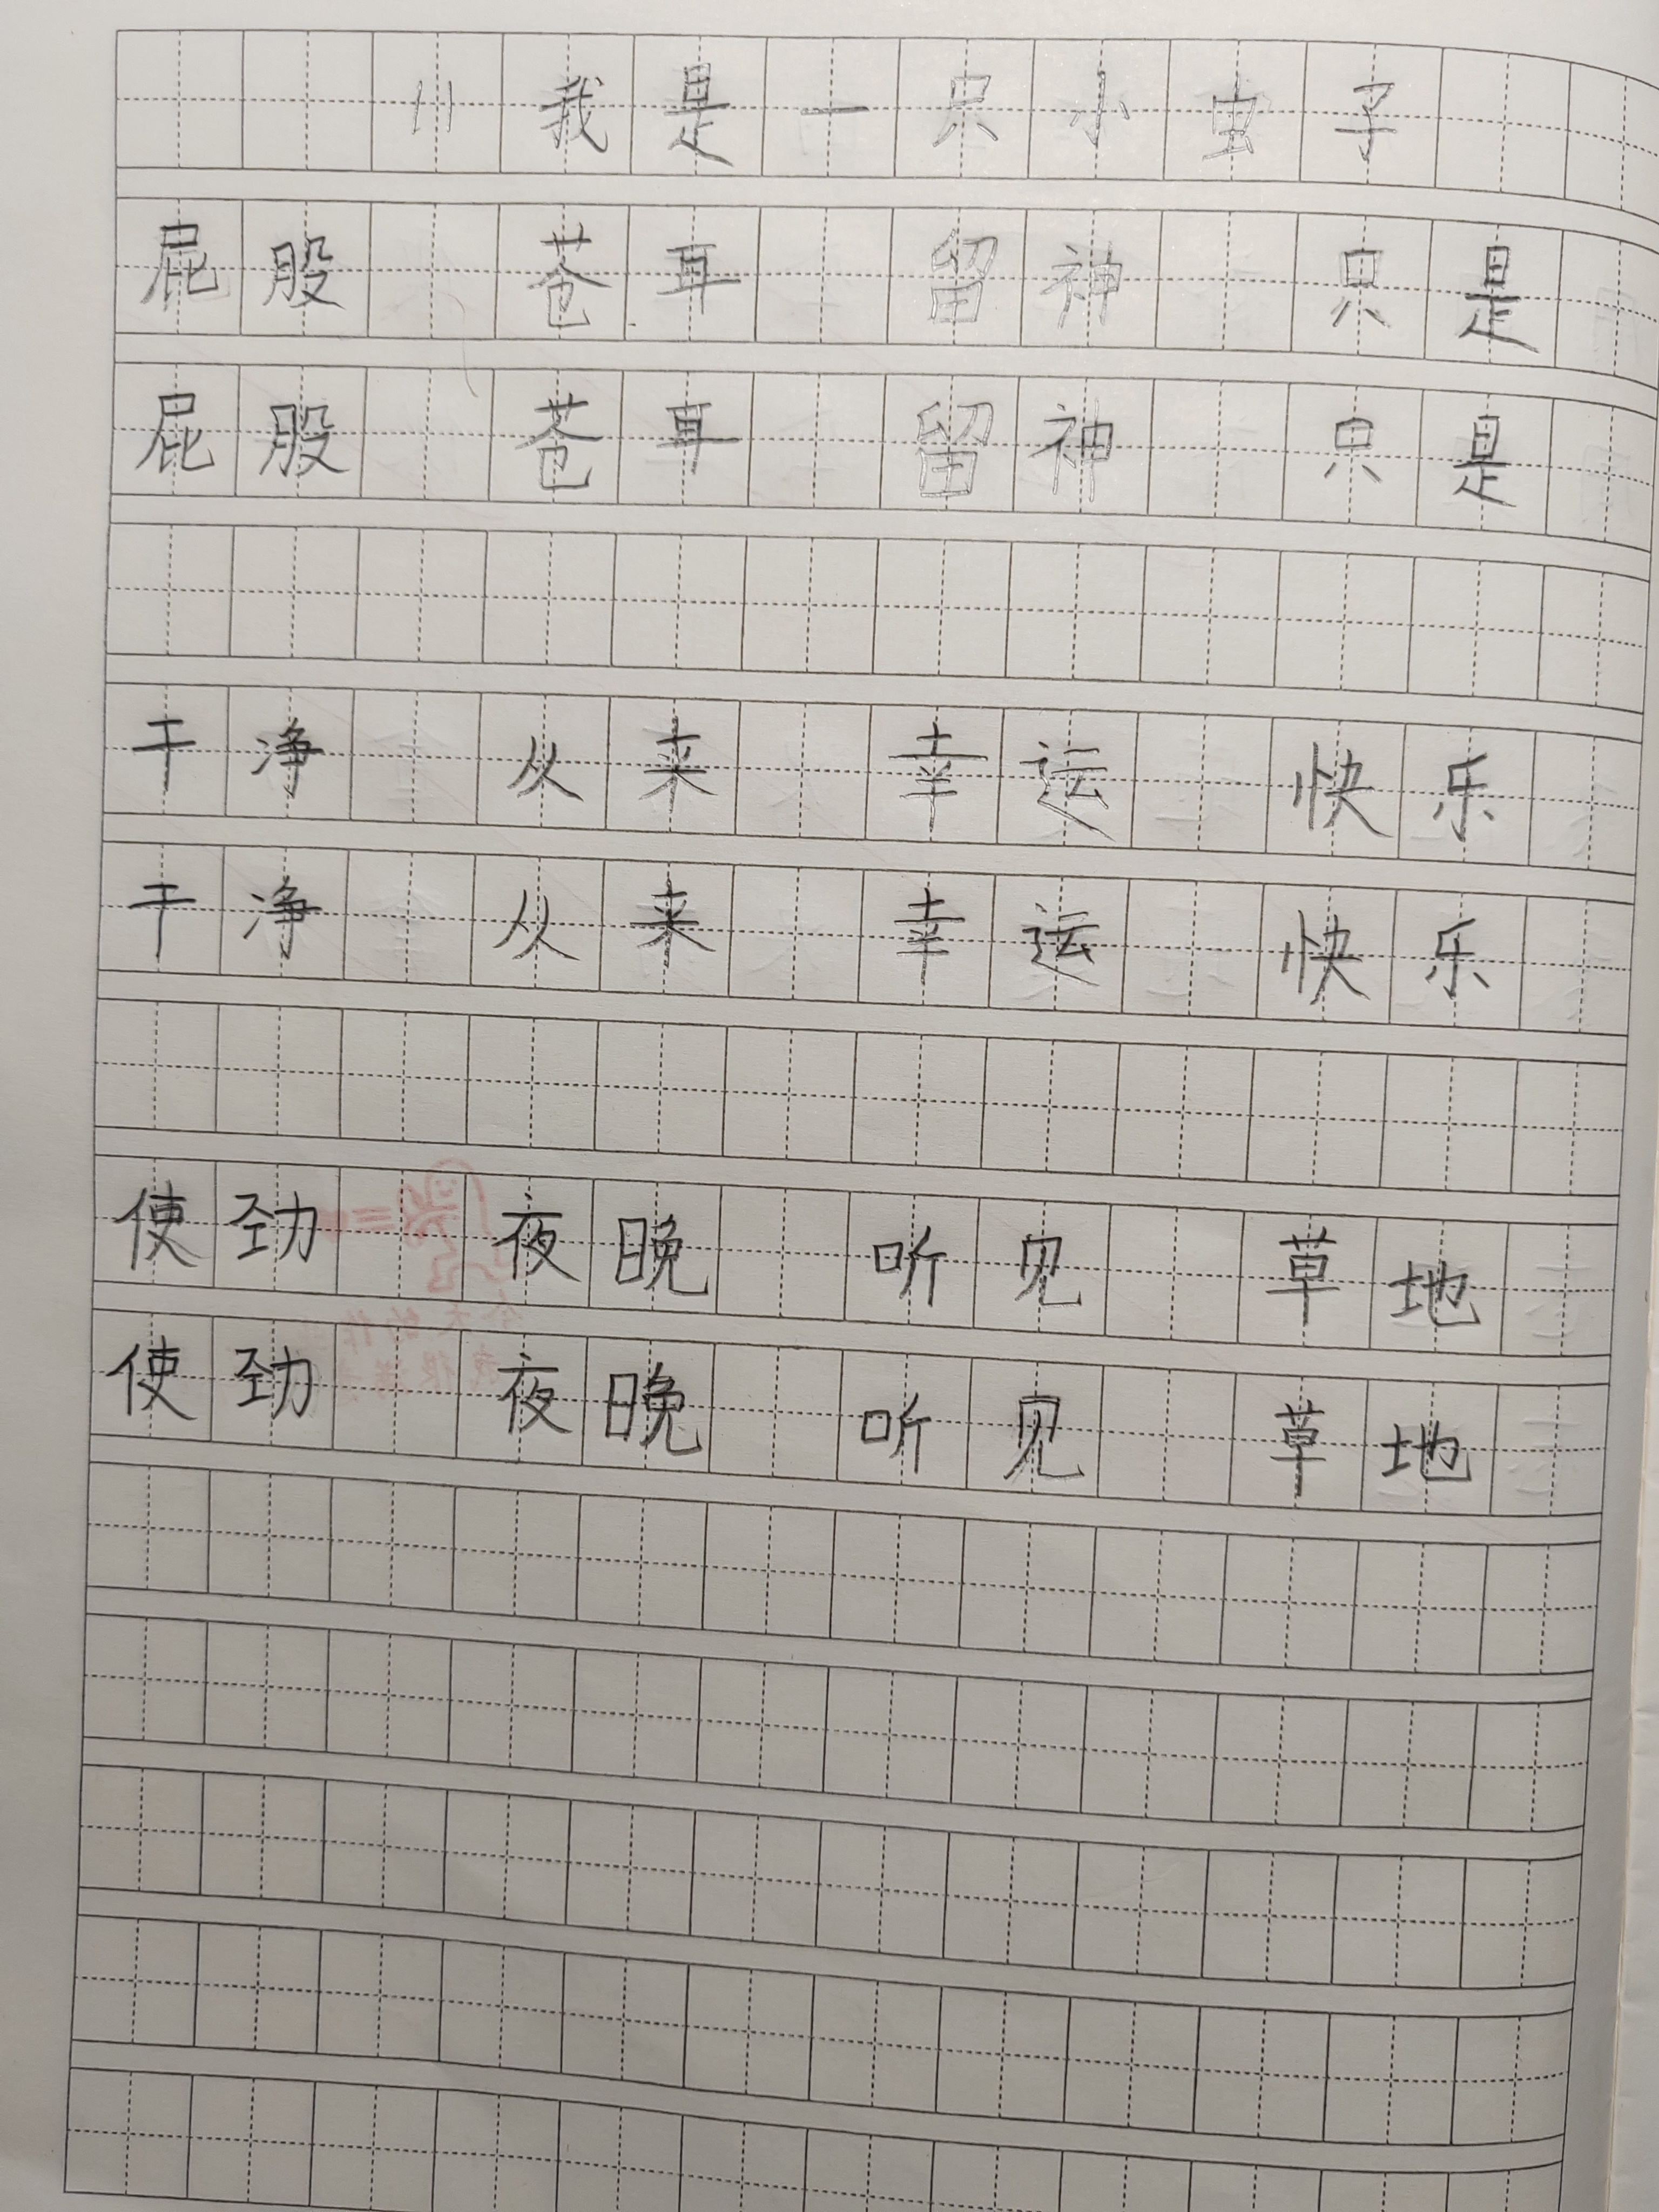 11 我是一只小虫子
屁股 苍耳 留神 只是
屁股 苍耳 留神 只是
干净 从来 幸运 快乐
干净 从来 幸运 快乐
使劲 夜晚 听见 草地
使劲 夜晚 听见 草地